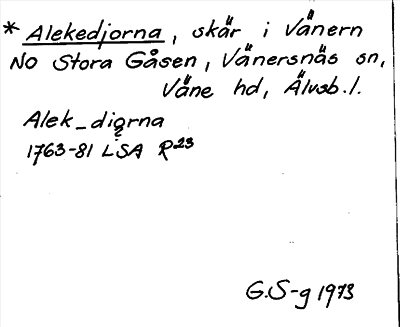 * Alekedjorna, skär i Vänern
NO Stora Gåsen, Vänersnäs sn,
Väne hd, Älvsb.l.
Alek_digrna
1763-81 LSA R23
G.S-g 1973